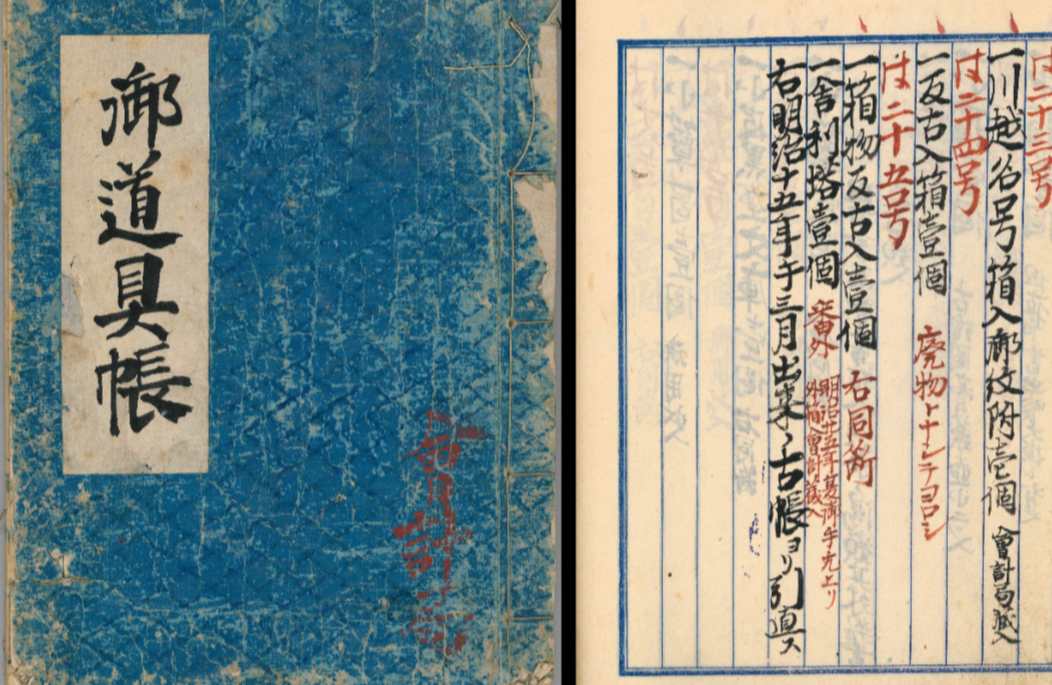 御道具帳
會計局
は二十三号
一川越名号箱入御紋附壱個 會計局蔵入
は二十四号
一反古入箱壹個 廃物トナシテヨロシ
は二十五号
一箱物反古入壹個 右同断
一舎利塔壹個 番外
明治廿五年
外箱入會計蔵入
右明治十五年午三月出来ノ古帳ヨリ引直ス